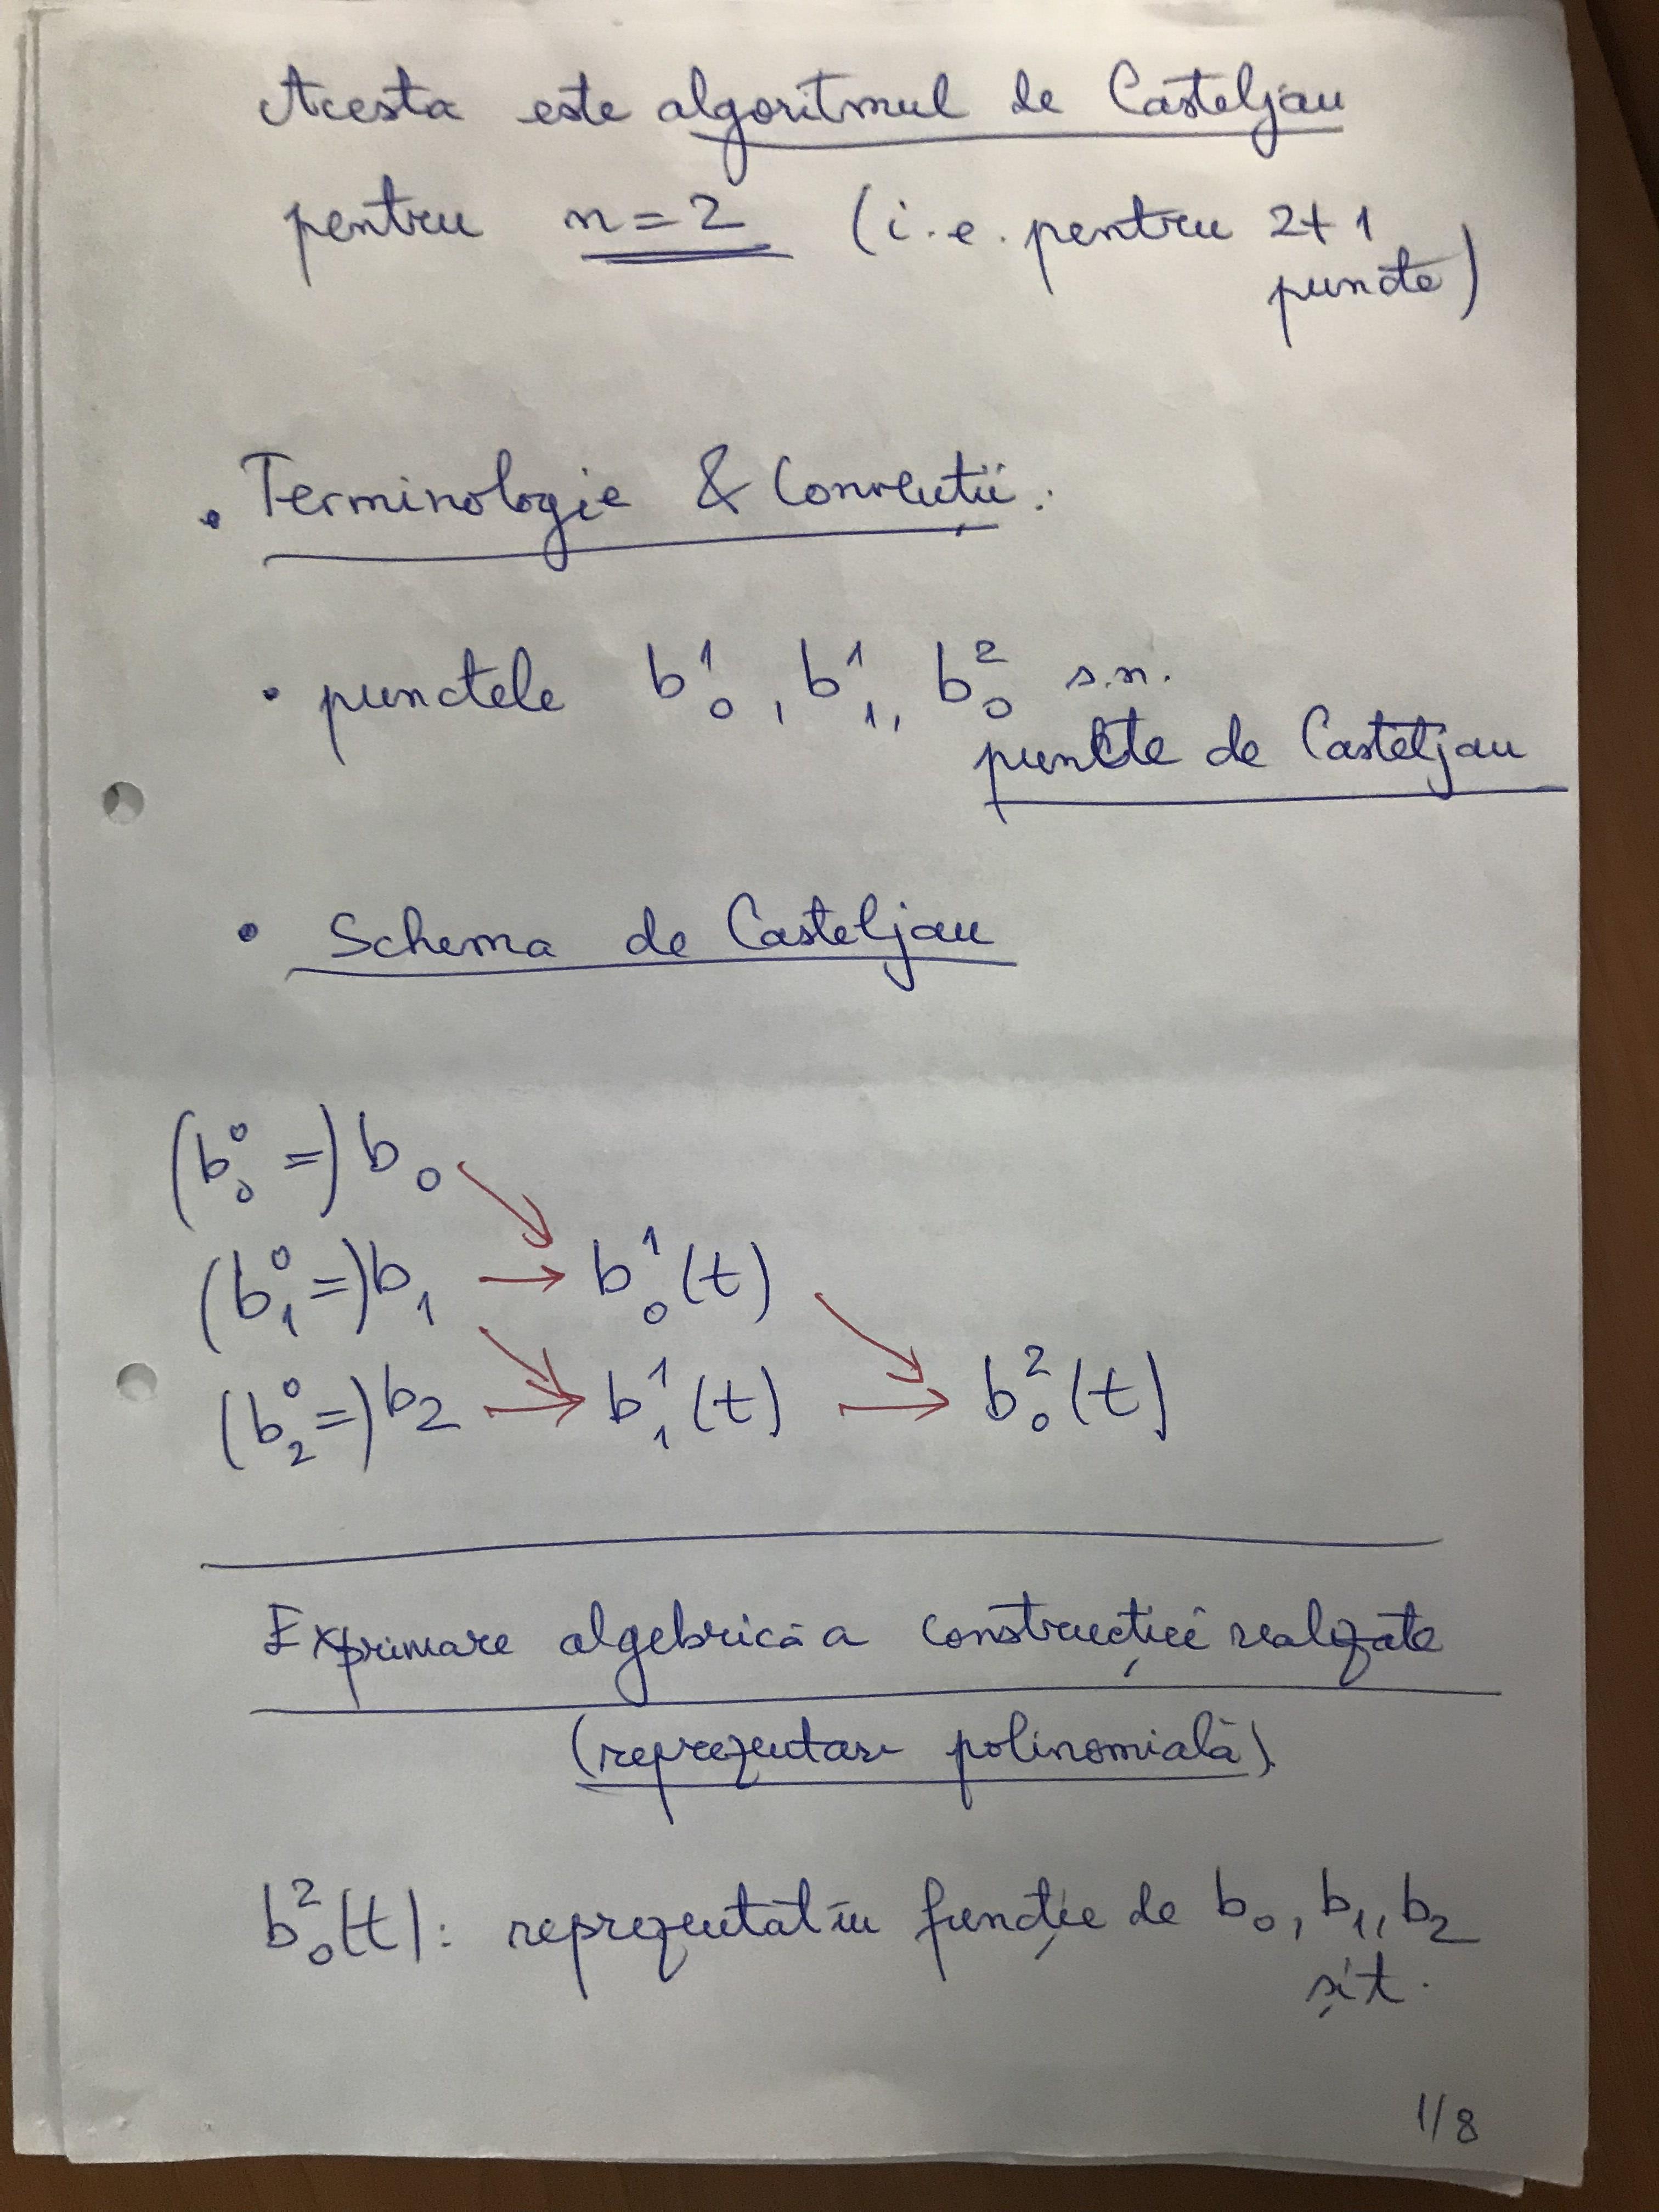 Acesta este algoritmul de Casteljau
pentru n=2 (i.e. pentru 2+1
puncte)
• Terminologie & Convenții:
• punctele b₀¹, b₁¹, b₀² s.n.
puncte de Casteljau
• Schema de Casteljau
(b₀⁰=) b₀
(b₁⁰=) b₁ b₀¹(t)
(b₂⁰=) b₂ b₁¹(t) b₀²(t)
Exprimare algebrică a construcției realizate
(reprezentare polinomială)
b₀²(t): reprezentat în funcție de b₀, b₁, b₂
și t.
1/8